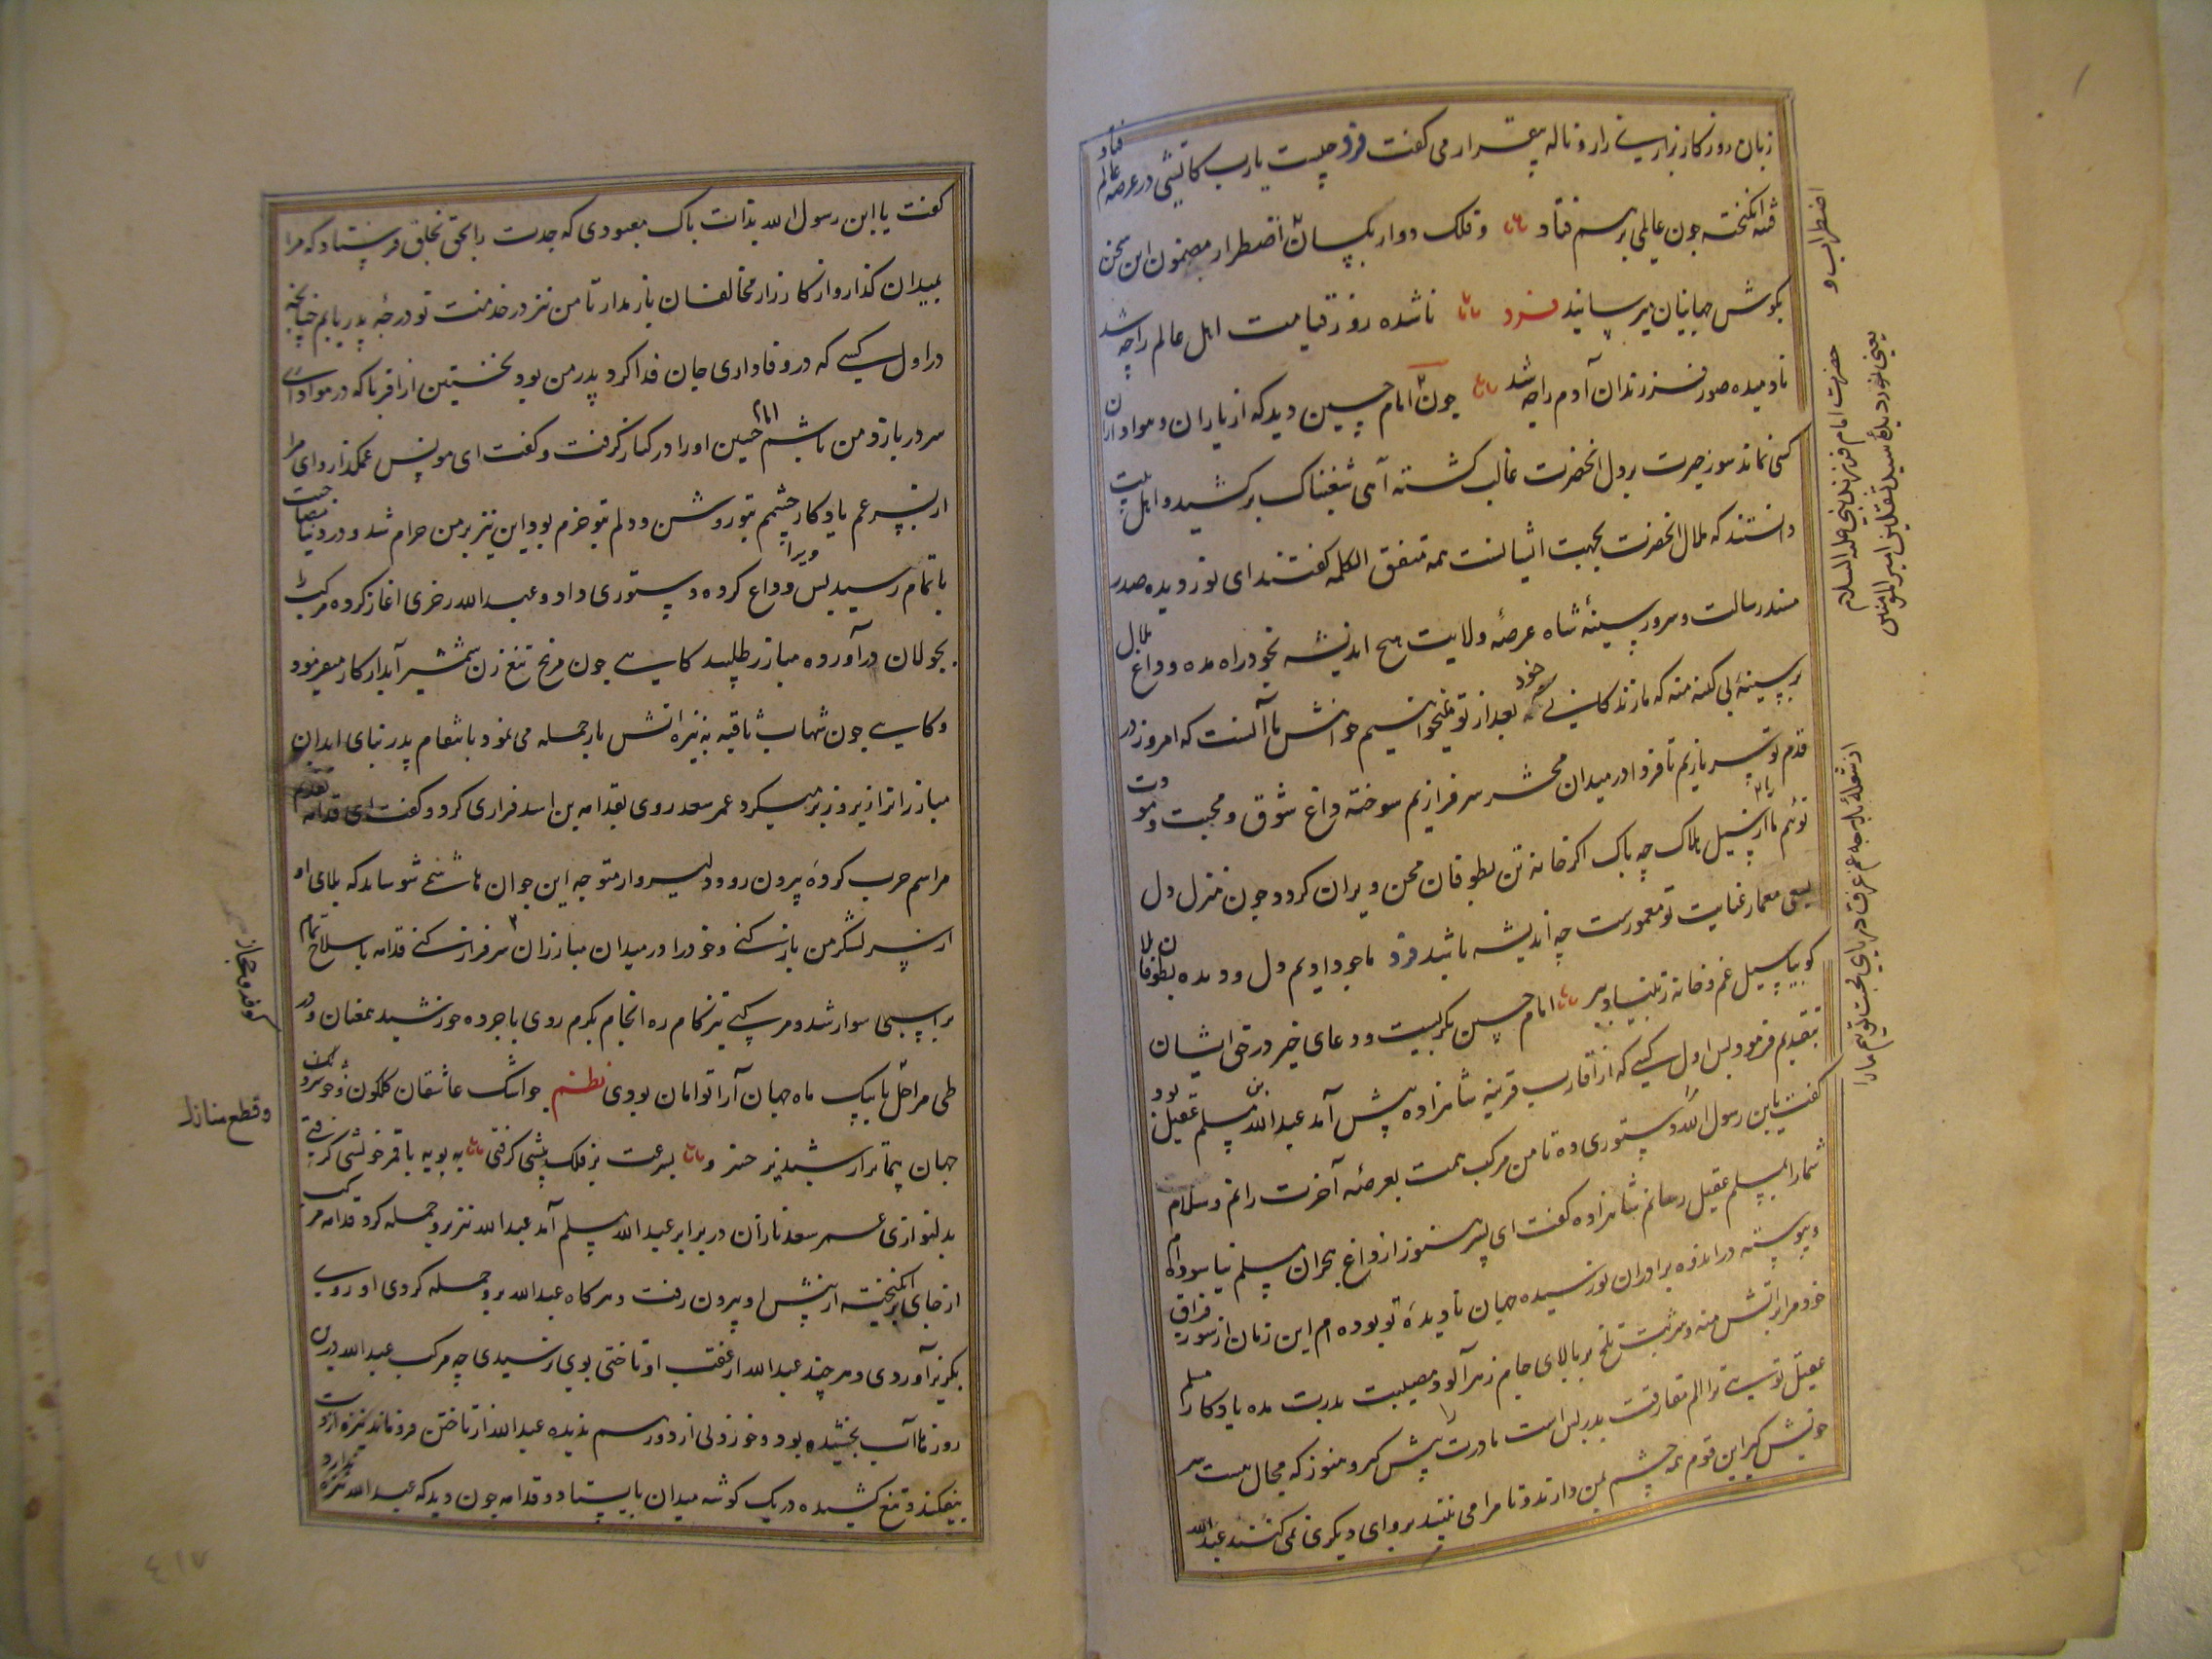 زبان روزکار بزاری زار و ناله بیقرار می کفت فرد چیست یارب کاتشی در عرصه عالم فتاد
فتنه انکیخته چون عالمی برسم فتاد و فلک دوار بلسان اضطرار مضمون این سخن
بکوش جهانیان میرسانید فرد ناشده روز قیامت اهل عالم را چه شد
نادمیده صور فرزندان آدم را چه شد چون امام حسین دید که از یاران و مواداران
کسی نماند سوز حیرت بر دل انحضرت غالب کشته آهی شغبناک برکشید و اهل بیت
دانستند که ملال انحضرت بجهت ایشانست همه متفق الکلمه کفتند ای نور دیده صدر
مسند رسالت و سرور سینهٔ شاه عرصهٔ ولایت هیچ اندیشه بخود راه مده و داغ ملال
بر سینهٔ بی کینه منه که ما زندکانی خود بعد از تو نمیخواهیم خواهش ما آنست که امروز در
قدم تو سر بازیم تا فردا در میدان محشر سرفرازیم سوخته داغ شوق و محبت و مودت
توئیم ما را از سیل هلاک چه باک اکر خانه تن بطوفان محن ویران کردد چون منزل دل
بسعی معمار عنایت تو معمورست چه اندیشه باشد فرد ما چو دادیم دل و دیده بطوفان بلا
کو بیا سیل غم و خانه ز بنیاد ببر امام حسین بکریست و دعای خیر در حق ایشان
بتقدیم فرمود پس اول کسی که از اقارب قرینه شاهزاده پیش آمد عبدالله بن مسلم عقیل بود
کفت یا بن رسول الله دستوری ده تا من مرکب همت بعرصهٔ آخرت رانم و سلام
شما را بمسلم عقیل رسانم شاهزاده کفت ای پسر هنوز از داغ هجران مسلم نیاسوده ام
و پیوسته در اندوه برادران نورسیده جهان نادیدهٔ تو بوده ام این زمان از سوز فراق
خود مرا بر آتش منه و شربت تلخ بر بالای جام زهرآلود مصیبت پدرت مده یادکار مسلم
عقیل توئی ترا الم مفارقت پدر بس است مادرت را پیش کیر و هنوز که مجال هست سر
خویش کیر این قوم همه چشم بمن دارند و تا مرا می بینند پروای دیکری نمی کنند عبدالله
اضطراب و
حضرت امام فرزند نبی علیه السلام
یعنی نور دیدهٔ سید ثقلین امیرالمومنین
از شعله بلا چه غم غرقه دریای محبت توئیم ما را
کفت یا ابن رسول الله بذات پاک معبودی که جدت را بحق بخلق فرستاد که مرا
بمیدان کذار و از کارزار مخالفان باز مدار تا من نیز در خدمت تو درجهٔ پدر یابم چنانچه
در اول کسی که در وفاداری جان فدا کرد پدر من بود نخستین از اقربا که در مواداری
سر در بازد من باشم امام حسین او را در کنار کرفت و کفت ای مونس غمکذار و ای مرا
از پسر عم یادکار چشمم بتو روشن و دلم بتو خرم بود این نیز بر من حرام شد و در دنیا
با تمام رسید پس ویرا وداع کرده دستوری داد و عبدالله رجزی اغاز کرده مرکب را
بجولان درآورده مبارز طلبید کاهی چون مریخ تیغ زن شمشیر آبدار کار میفرمود
و کاهی چون شهاب ثاقب به نیزه اتش بار حمله می نمود بانتقام پدر بنای ابدان
مبارزانرا زیر و زبر میکرد عمر سعد روی بقدامه بن اسد فراری کرد و کفت ای قدامه تقدیم
مراسم حرب کرده بیرون رو و دلیروار متوجه این جوان هاشمی شو شاید که بلای او
از سر لشکر من باز کنی و خود را در میدان مبارزان سرفراز کنی قدامه با سلاح تمام
بر اسپی سوار شد و مرکبی تیزکام ره انجام بکرم روی با جرده خورشید همعنان و در
طی مراحل با پیک ماه جهان آرا توامان بودی نظم چو اشک عاشقان کلکون و خوش رو
جهان پیماتر از شبدیز خسرو بسرعت بر فلک پیشی کرفتی به بویه با قمر خویشی کرفتی
بدلنوازی عمر سعد نازان در برابر عبدالله مسلم آمد عبدالله نیز برو حمله کرد قدامه مرکب
از جای برانکیخته از پیش او بیرون رفت و هر کاه عبدالله برو حمله کردی او روی
بکریز آوردی و هر چند عبدالله از عقب او تاختی بوی نرسیدی چه مرکب عبدالله درین
روزها آب نچشیده بود و خوردنی از دور هم ندیده عبدالله از تاختن فرو ماند نیزه از دست
بیفکند و تیغ کشیده در یک کوشه میدان بایستاد و قدامه چون دید که عبدالله نیزه ندارد
و قطع منازل